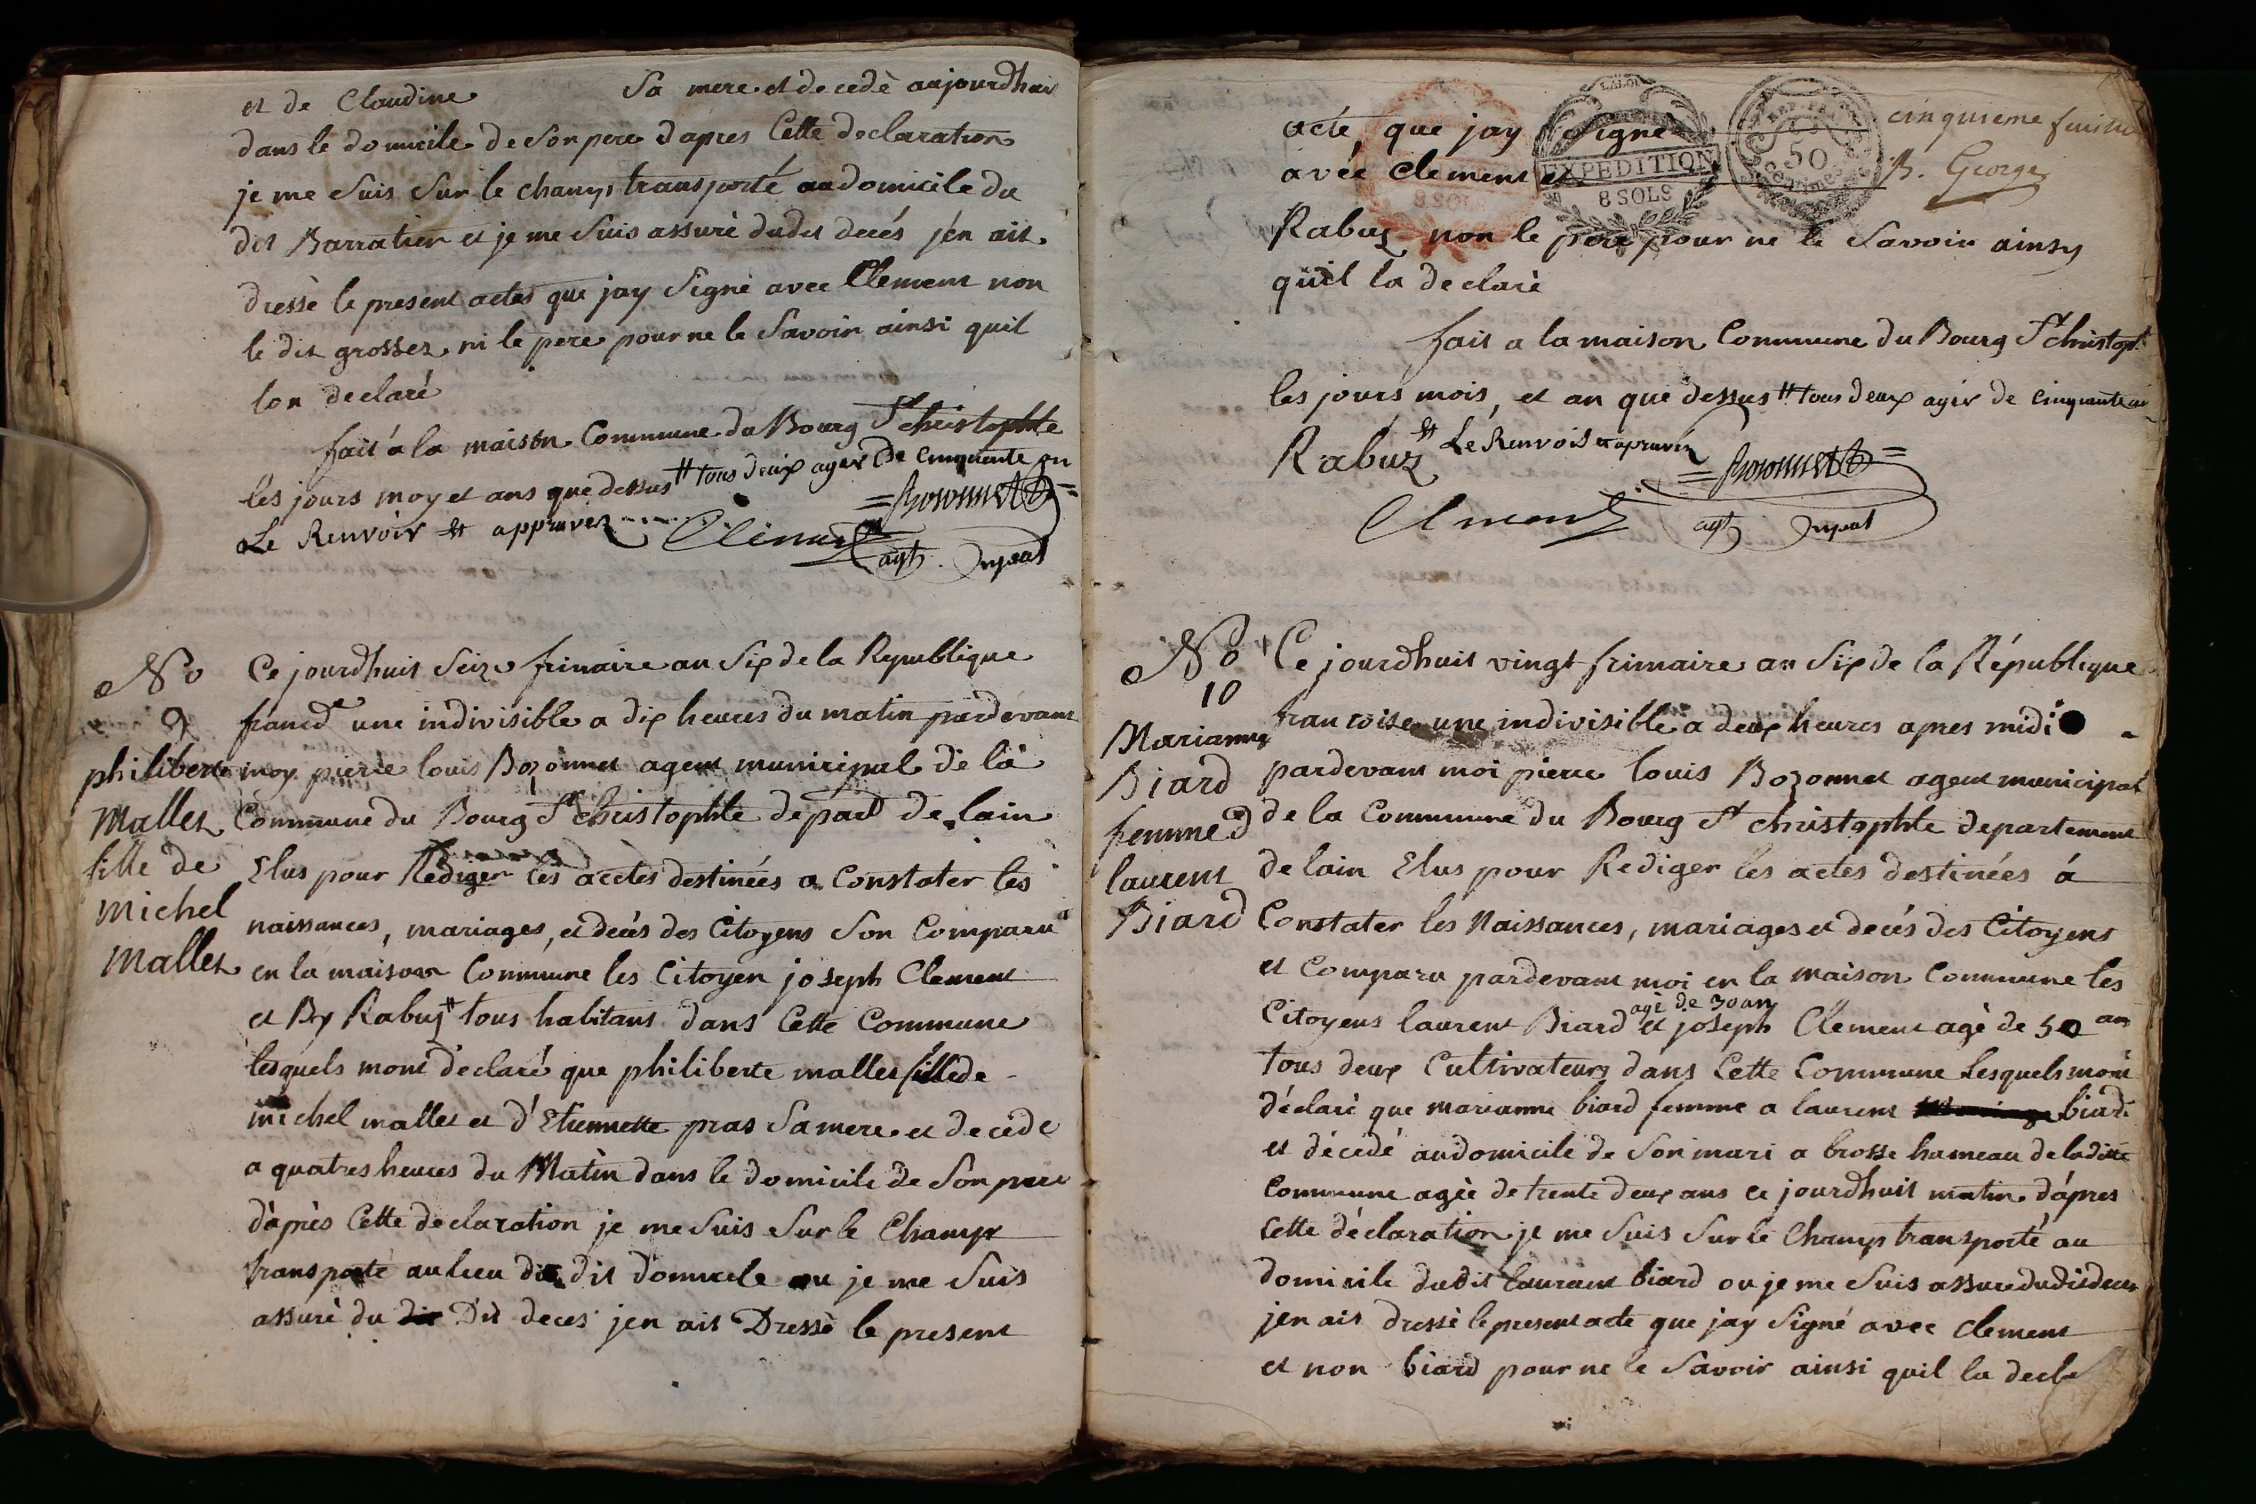 et de Claudine Sa mere et decedè aujourdhui
dans le domicile de Son pere d'apres Cette declaration
je me Suis Sur le champs transporté au domicile du
dit Barratier et je me Suis assuré dudit decés j'en ait
dressè le present actes que jay Signé avec Clement non
le dit grosset ni le pere pour ne le Savoir ainsi quil
lon declaré
fait a la maison Commune du Bourg St christophle
les jours moy et ans que dessus # tous deux agés de Cinquante an
Le Renvoir # appruvez
Clement
Bozonnet
agt
No
9
philiberte
Mallet
fille de
michel
Mallet
Ce jourdhuit Seize frimaire an Six de la Republique
francse une indivisible a dix heures du matin pardevant
moy pierre louis Bozonnet agent municipal de la
Commune du Bourg St christophle depart de lain
Elus pour Rediger les acctes destinées a Constater les
naissances, mariages, et decés des Citoyens Son Comparu
en la maison Commune les Citoyen joseph Clement
et Rabuz # tous habitans dans Cette Commune
lesquels mont déclaré que philiberte mallet fille de
michel mallet et d'Etiennette pras Sa mere et decede
a quatres heures du Matin dans le domicile de Son pere
d'après Cette declaration je me Suis Sur le Champs
transporté au lieu du dit domicile ou je me Suis
assuré du dit Dit deces jen ait Dressé le present
acte que jay Signé
avéc Clement et
Rabuz non le pere pour ne le Savoir ainsy
quil la declarè
EXPEDITION
8 SOLS
8 SOLS
50
cinquieme
B. George
fait a la maison Commune du Bourg St christoph
les jours mois, et an que dessus # tous deux agér de Cinquante
Rabuz
# Le Renvois appruvé
Bozonnet
Clement
agt
No
10
Marianne
Biard
femme d
laurent
Biard
Ce jourdhuit vingt frimaire an Six de la République
francoise une indivisible a deux heures apres midi
pardevant moi pierre louis Bozonnet agent municipal
de la Commune du Bourg St christophle departement
de lain Elus pour Rediger les actes destinées á
Constater les Naissances, mariages et decés des Citoyens
et Comparu pardevant moi en la maison Commune les
Citoyens laurent Biard agé de 30 ans et joseph Clement agè de 50 ans
tous deux Cultivateurs dans Cette Commune Lesquels mont
déclaré que marianne biard femme a laurent biard
et décedé au domicile de Son mari a brosse hameau de la ditte
Commune agèe de trente deux ans ce jourdhuit matin d'apres
Cette déclaration je me Suis Sur le Champs transporté au
domicile dudit laurent biard ou je me Suis assuré dudit deces
jen ait dressé le present acte que jay Signé avec Clement
et non biard pour ne le Savoir ainsi quil la decla